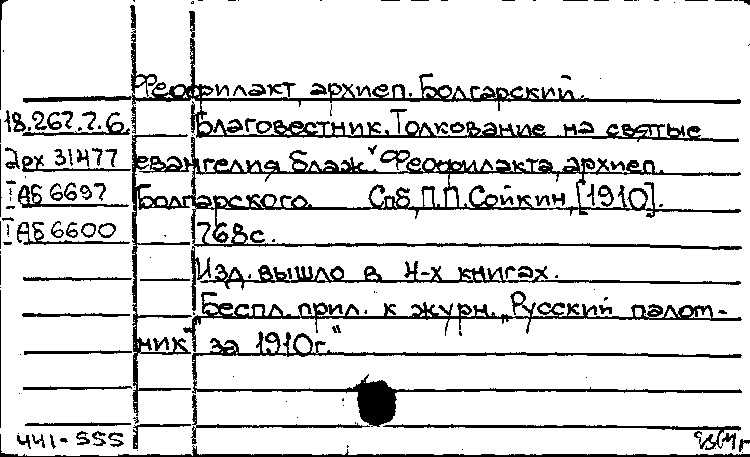 Феофилакт, архиеп. Болгарский.
18.267.7.6. Благовестник. Толкование на святые
2рх 31477 евангелия блаж. Феофилакта, архиеп.
I АБ 6697 Болгарского. Спб, П.П. Сойкин, [1910].
I АБ 6600 768с.
Изд. вышло в 4-х книгах.
Беспл. прил. к журн. „Русский палом-
ник" за 1910г."
441-555